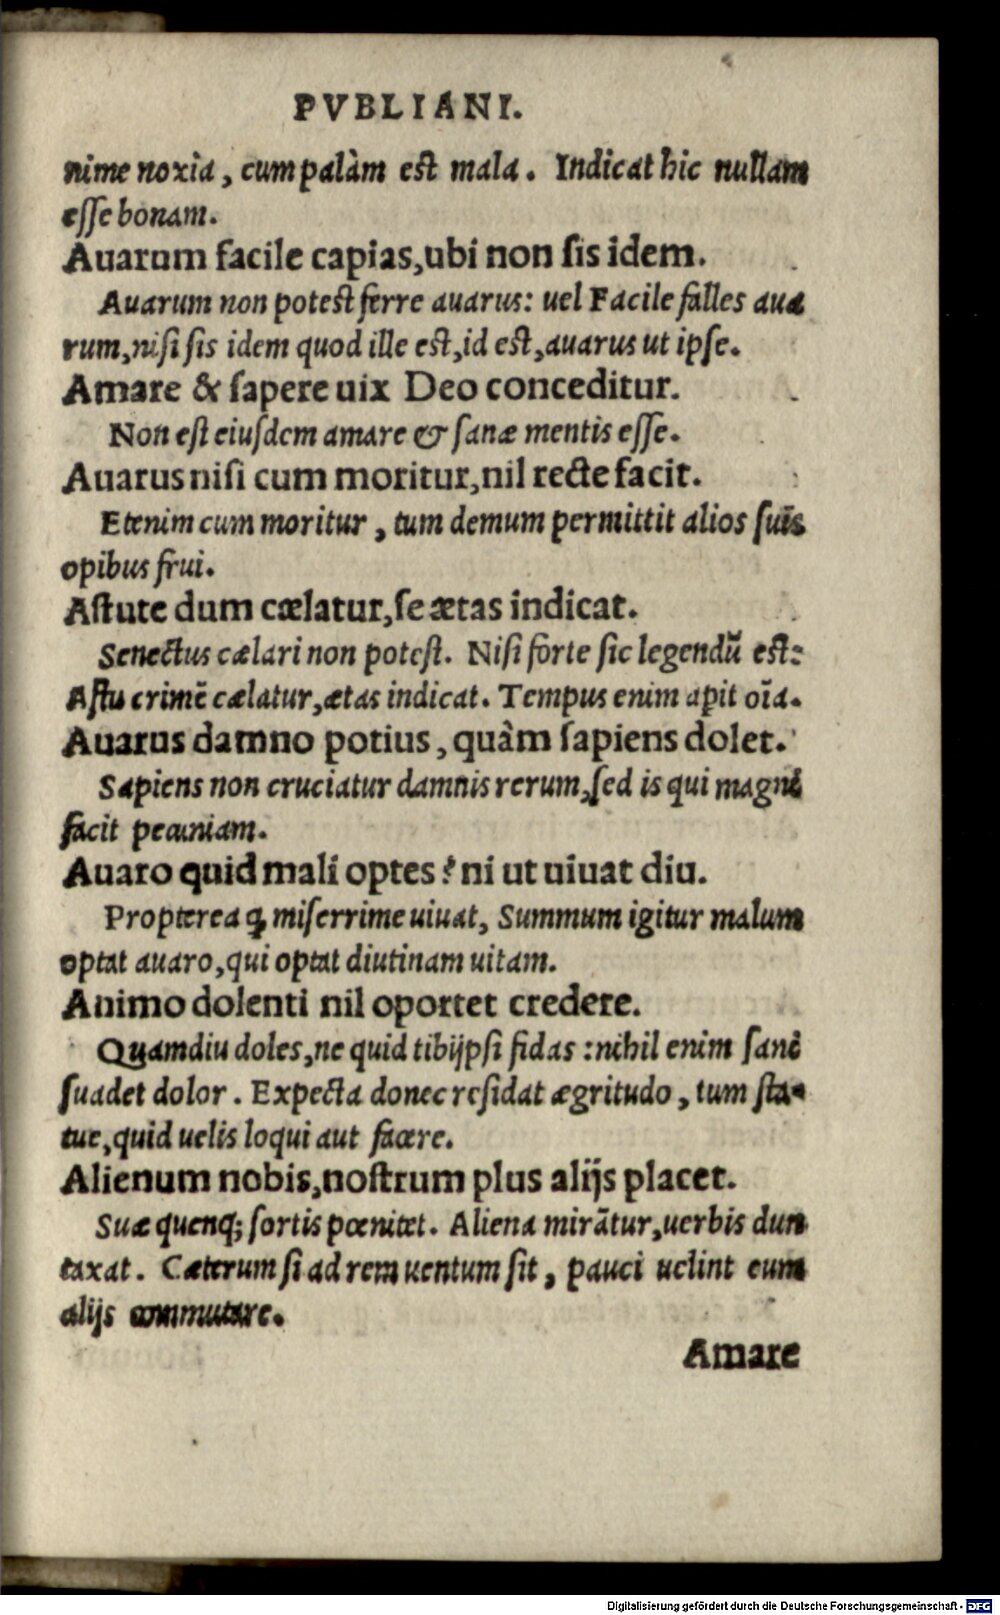 PVBLIANI.
nime noxia, cum palàm est mala. Indicat hic nullam
esse bonam.
Auarum facile capias, ubi non sis idem.
Auarum non potest ferre auarus: uel Facile falles aua
rum, nisi sis idem quod ille est, id est, auarus ut ipse.
Amare & sapere uix Deo conceditur.
Non est eiusdem amare & sanæ mentis esse.
Auarus nisi cum moritur, nil recte facit.
Etenim cum moritur, tum demum permittit alios suis
opibus frui.
Astute dum cælatur, se ætas indicat.
Senectus cælari non potest. Nisi forte sic legendũ est:
Astu crimẽ cælatur, ætas indicat. Tempus enim apit oĩa.
Auarus damno potius, quàm sapiens dolet.
Sapiens non cruciatur damnis rerum, sed is qui magni
facit pecuniam.
Auaro quid mali optes? ni ut uiuat diu.
Propterea ꝙ miserrime uiuat, Summum igitur malum
optat auaro, qui optat diutinam uitam.
Animo dolenti nil oportet credere.
Quamdiu doles, ne quid tibijpsi fidas: nihil enim sani
suadet dolor. Expecta donec residat ægritudo, tum sta-
tue, quid uelis loqui aut facere.
Alienum nobis, nostrum plus alijs placet.
Suæ quenq; sortis pœnitet. Aliena mirãtur, uerbis dun
taxat. Cæterum si ad rem uentum sit, pauci uelint eum
alijs commutare.
Amare
Digitalisierung gefördert durch die Deutsche Forschungsgemeinschaft - DFG